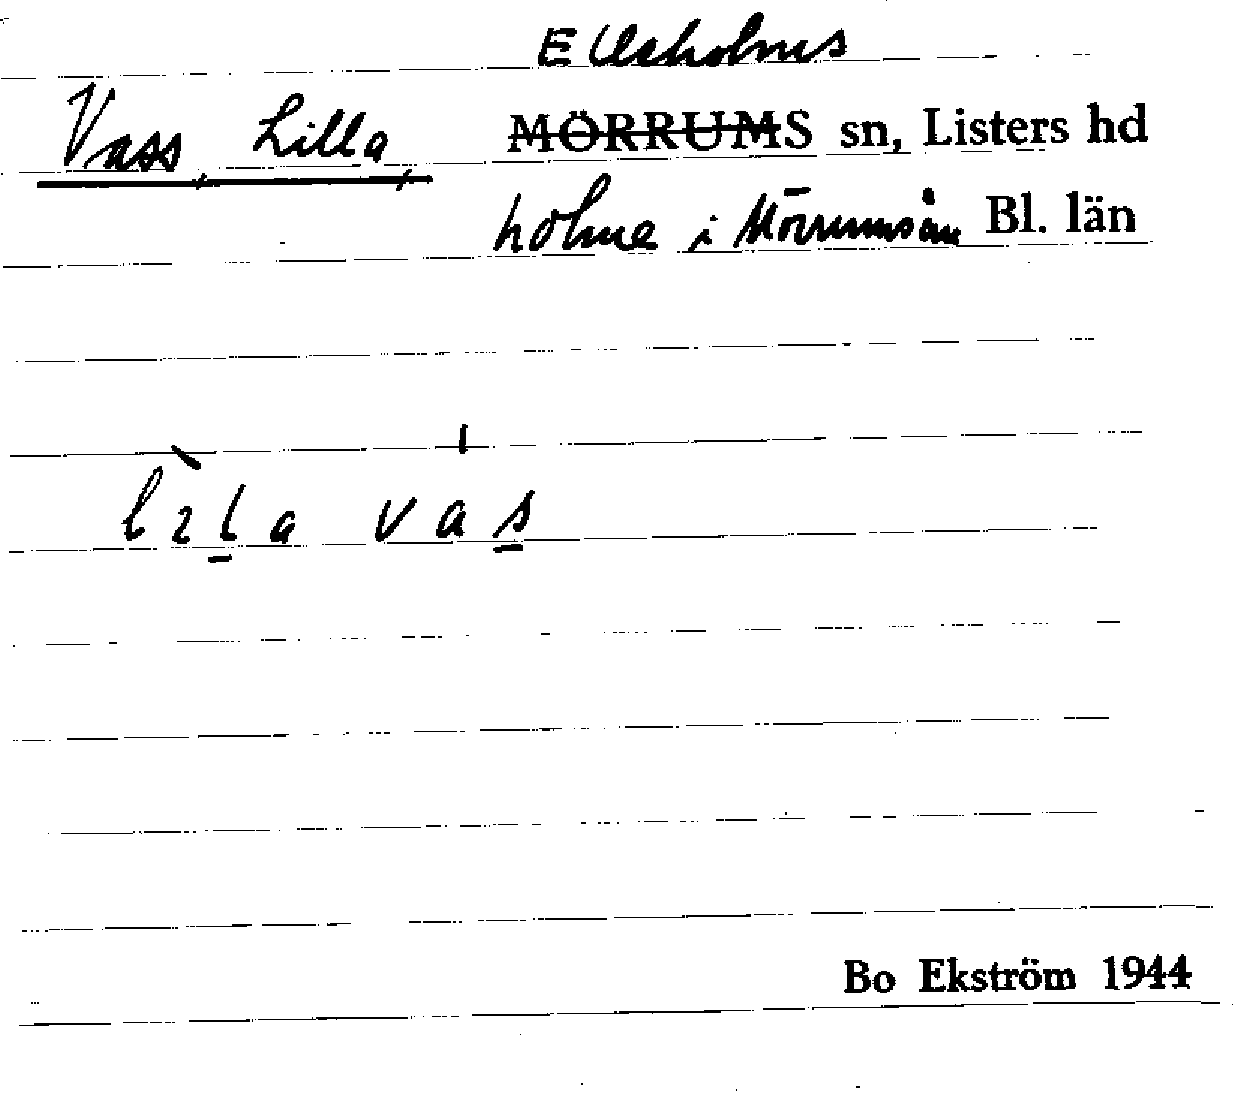 Elleholms
Vass, Lilla, MÖRRUMS sn, Listers hd
holme i Mörrumsån Bl. län
lila vas
Bo Ekström 1944